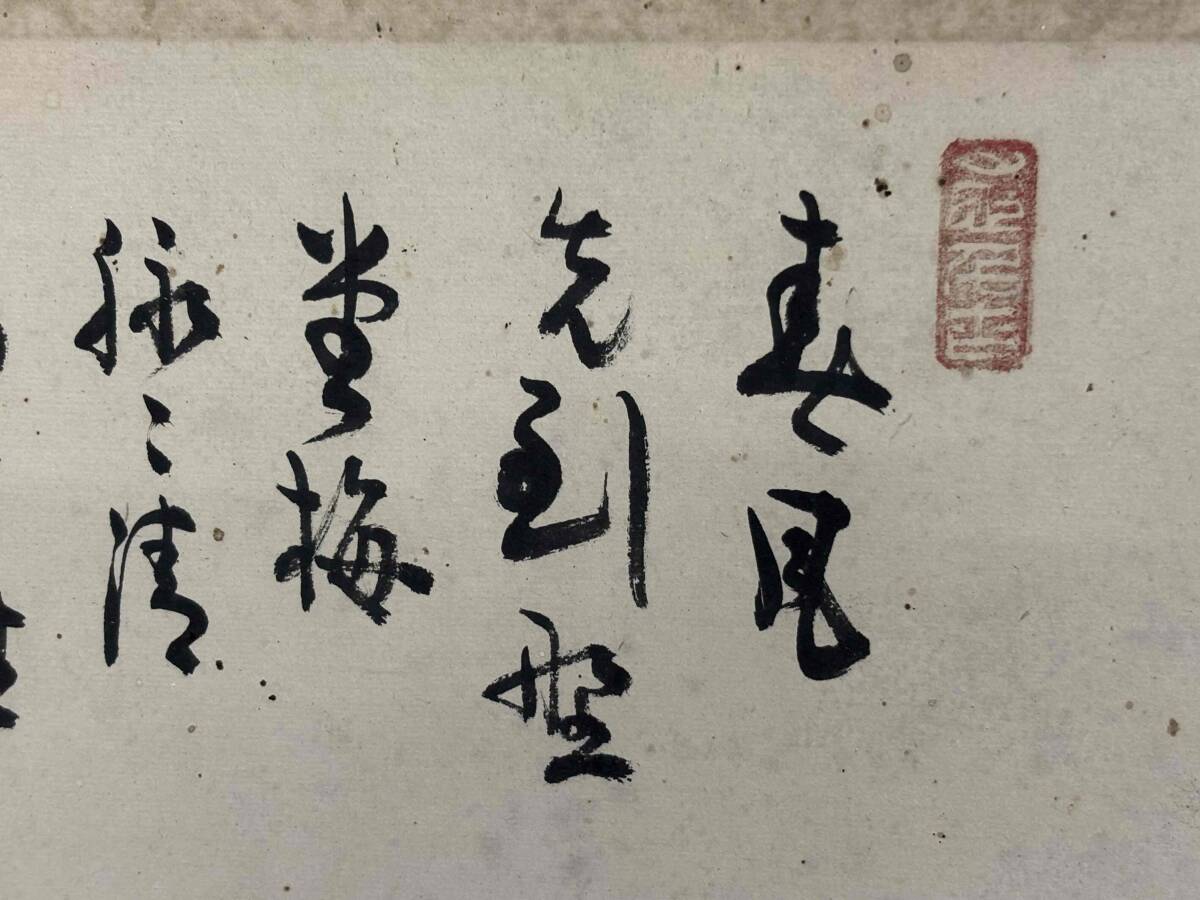 春風
先到野
堂梅
脉〻清